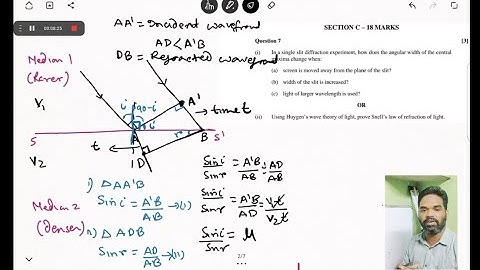 00:08:25
AA' = Incident wavefront
AD < A'B
DB = Refracted wavefront
Median 1
(Rarer)
V₁
i
90-i
i
A'
→ time t
S
A
r
B
S'
V₂
t ←
D
i) △ AA'B
Sin i = A'B/AB → (i)
Median 2
(denser)
ii) △ ADB
Sin r = AD/AB → (ii)
Sin i/Sin r = A'B/AB ÷ AD/AB
Sin i/Sin r = A'B/AD = V₁t/V₂t
Sin i/Sin r = μ
SECTION C – 18 MARKS
Question 7 [3]
(i) In a single slit diffraction experiment, how does the angular width of the central
maxima change when:
(a) screen is moved away from the plane of the slit?
(b) width of the slit is increased?
(c) light of larger wavelength is used?
OR
(ii) Using Huygen's wave theory of light, prove Snell's law of refraction of light.
2/7